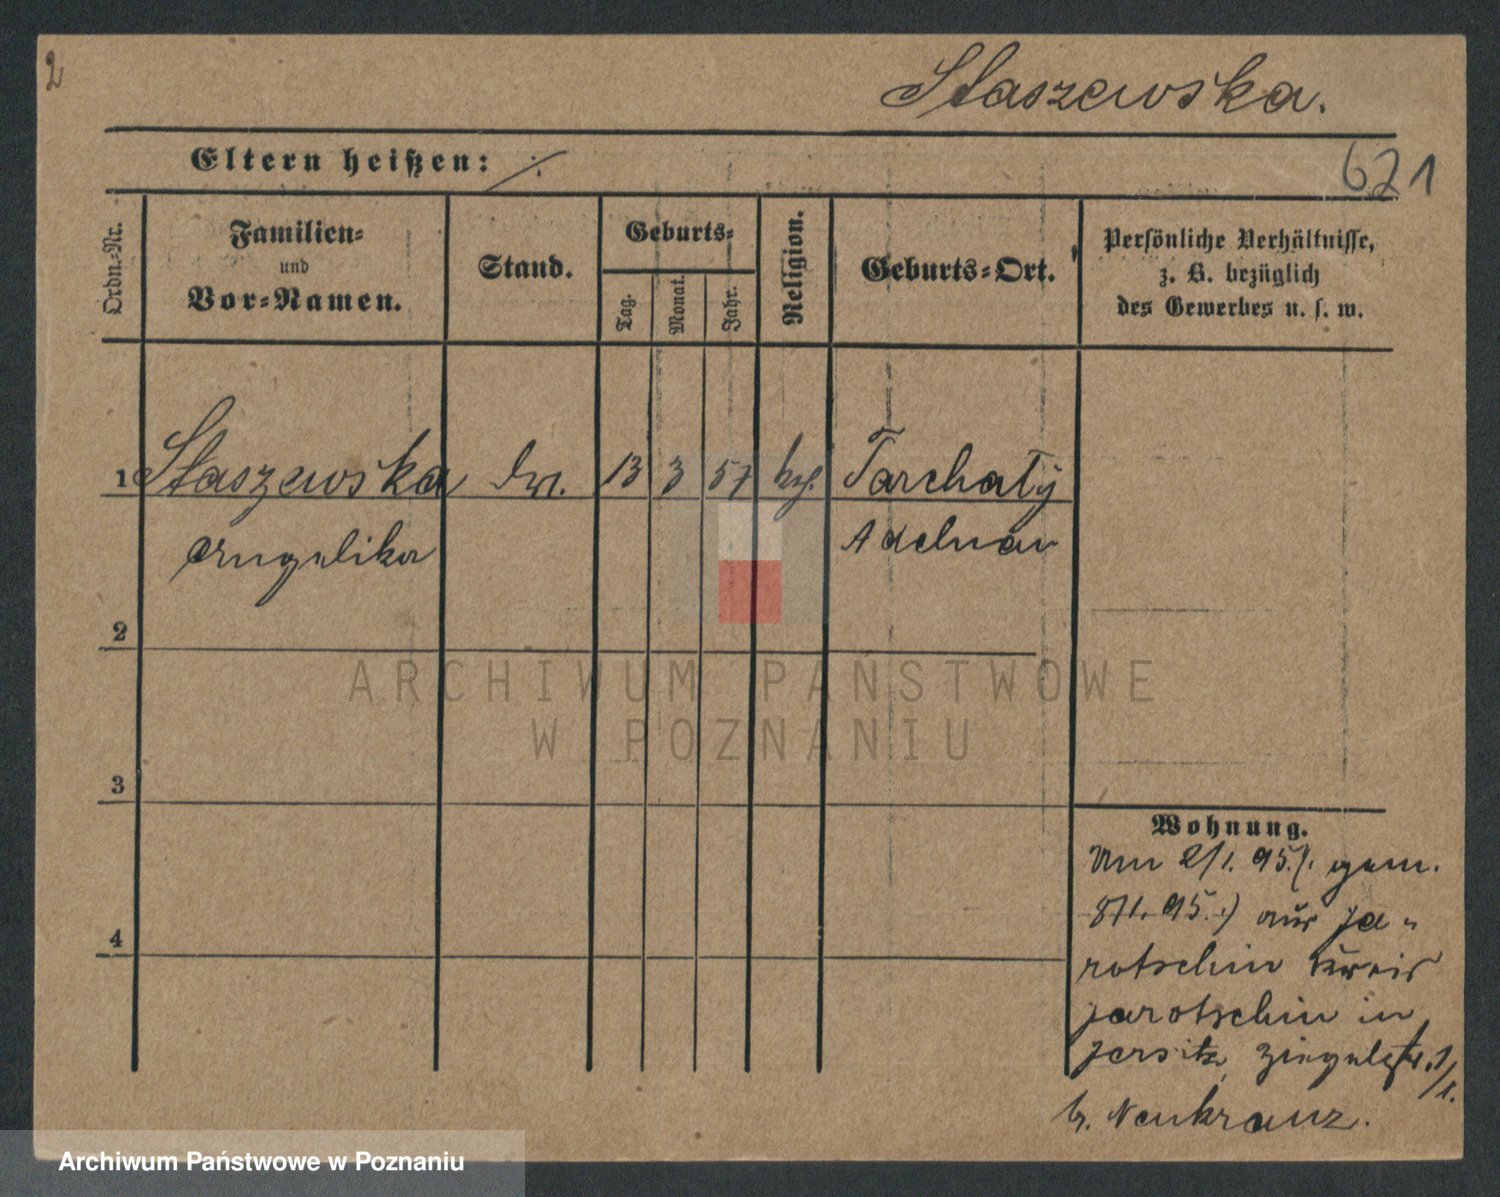 2
Staszewska.
Eltern heißen: ./.
671
Ordn.-Nr.
Familien-
und
Vor-Namen.
Stand.
Geburts-
Tag.
Monat.
Jahr.
Religion.
Geburts-Ort.
Persönliche Verhältnisse,
z. B. bezüglich
des Gewerbes u. s. w.
1 Staszewska 13 3 57 Tarchaly
Angelika Adelnau
2
3
4
ARCHIWUM PAŃSTWOWE
W POZNANIU
Wohnung.
Am 2/1. 95. (. gem.
8/1. 95. .) aus Ja-
rotschin Kreis
Jarotschin in
Jersitz, Ziegelstr. 1/1.
b. Neukranz.
Archiwum Państwowe w Poznaniu